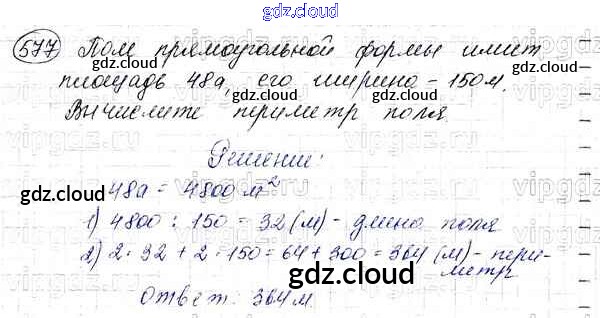 gdz.cloud
577 Поле прямоугольной формы имеет
площадь 48а, его ширина - 150м.
Вычислите периметр поля.
Решение:
48а = 4800 м²
1) 4800 : 150 = 32 (м) - длина поля
2) 2 · 32 + 2 · 150 = 64 + 300 = 364 (м) - пери-
метр
Ответ: 364м.
gdz.cloud
gdz.cloud
gdz.cloud
gdz.cloud
gdz.cloud